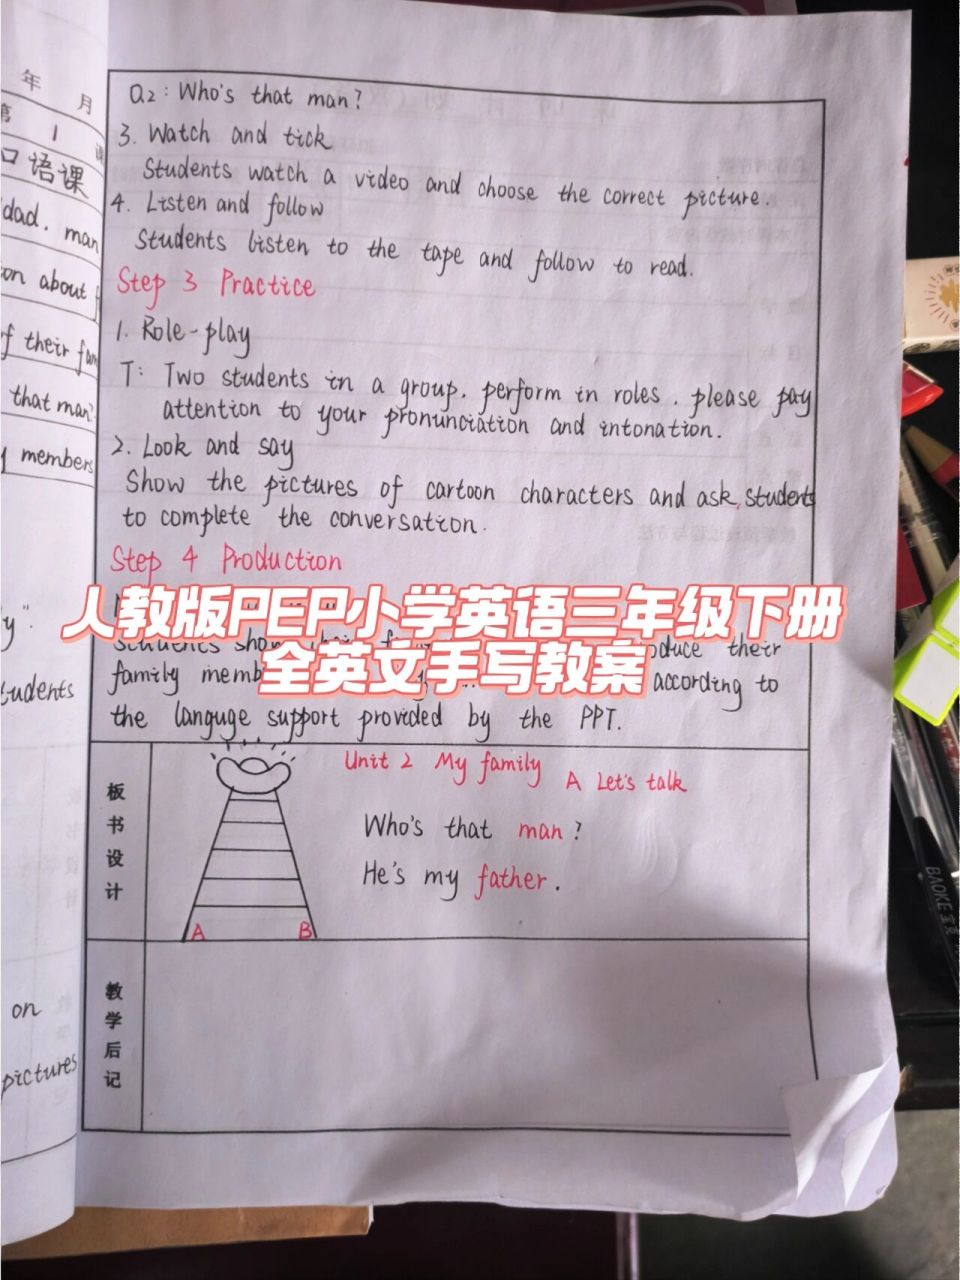 年 月
第 1 课
口语课
dad. man
on about f
f their fam
that man?
members
y"
tudents
on
pictures
Q2: Who's that man?
3. Watch and tick
Students watch a video and choose the correct picture.
4. Listen and follow
Students listen to the tape and follow to read.
Step 3 Practice
1. Role-play
T: Two students in a group. perform in roles. please pay
attention to your pronunciation and intonation.
2. Look and say
Show the pictures of cartoon characters and ask students
to complete the conversation.
Step 4 Production
人教版PEP小学英语三年级下册
Students show their their
全英文手写教案
family according to
the languge support provided by the PPT.
板书设计
Unit 2 My family A Let's talk
Who's that man?
He's my father.
A B
教学后记
BAOKE